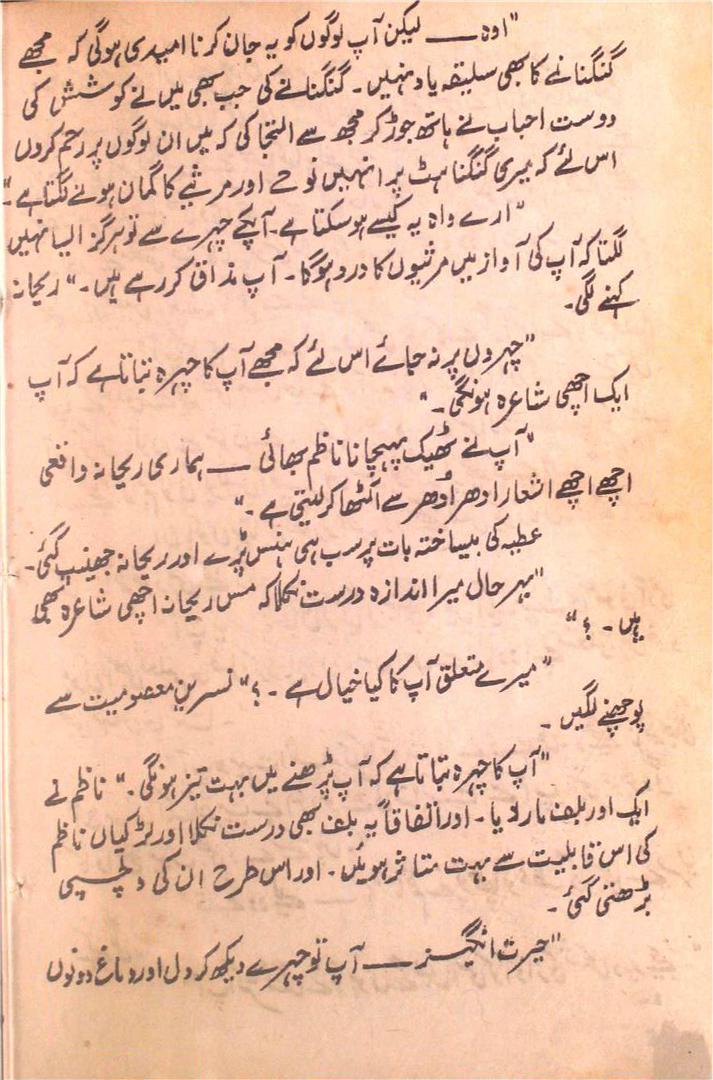 "اوہ —— لیکن آپ لوگوں کو یہ جان کر نا امیدی ہوگی کہ مجھے
گنگنانے کا بھی سلیقہ یاد نہیں۔ گنگنانے کی جب بھی میں نے کوشش کی
دوست احباب نے ہاتھ جوڑ کر مجھ سے التجا کی کہ میں ان لوگوں پر رحم کروں
اس لئے کہ میری گنگناہٹ پر انہیں نوحے اور مرثیے کا گمان ہونے لگتا ہے۔"
"ارے واہ یہ کیسے ہو سکتا ہے۔ آپکے چہرے سے تو ہرگز ایسا نہیں
لگتا کہ آپ کی آواز میں مرثیوں کا درد ہوگا۔ آپ مذاق کر رہے ہیں۔" ریحانہ
کہنے لگی۔
"چہروں پر نہ جائے اس لئے کہ مجھے آپ کا چہرہ بتاتا ہے کہ آپ
ایک اچھی شاعرہ ہونگی۔"
"آپ نے ٹھیک پہچانا ناظم بھائی —— ہماری ریحانہ واقعی
اچھے اچھے اشعار ادھر اُدھر سے اکٹھا کر لیتی ہے۔"
عطیہ کی بیساختہ بات پر سب ہی ہنس پڑے اور ریحانہ جھینپ گئی۔
"بہر حال میرا اندازہ درست نکلا کہ مس ریحانہ اچھی شاعرہ بھی
ہیں۔ ؟"
"میرے متعلق آپ کا کیا خیال ہے۔ ؟" نسرین معصومیت سے
پوچھنے لگیں۔
"آپ کا چہرہ بتاتا ہے کہ آپ پڑھنے میں بہت تیز ہونگی۔" ناظم نے
ایک اور بلف مار دیا۔ اور اتفاقاً یہ بلف بھی درست نکلا اور لڑکیاں ناظم
کی اس قابلیت سے بہت متاثر ہوئیں۔ اور اس طرح ان کی دلچسپی
بڑھتی گئی۔
"حیرت انگیز —— آپ تو چہرے دیکھ کر دل اور دماغ دونوں